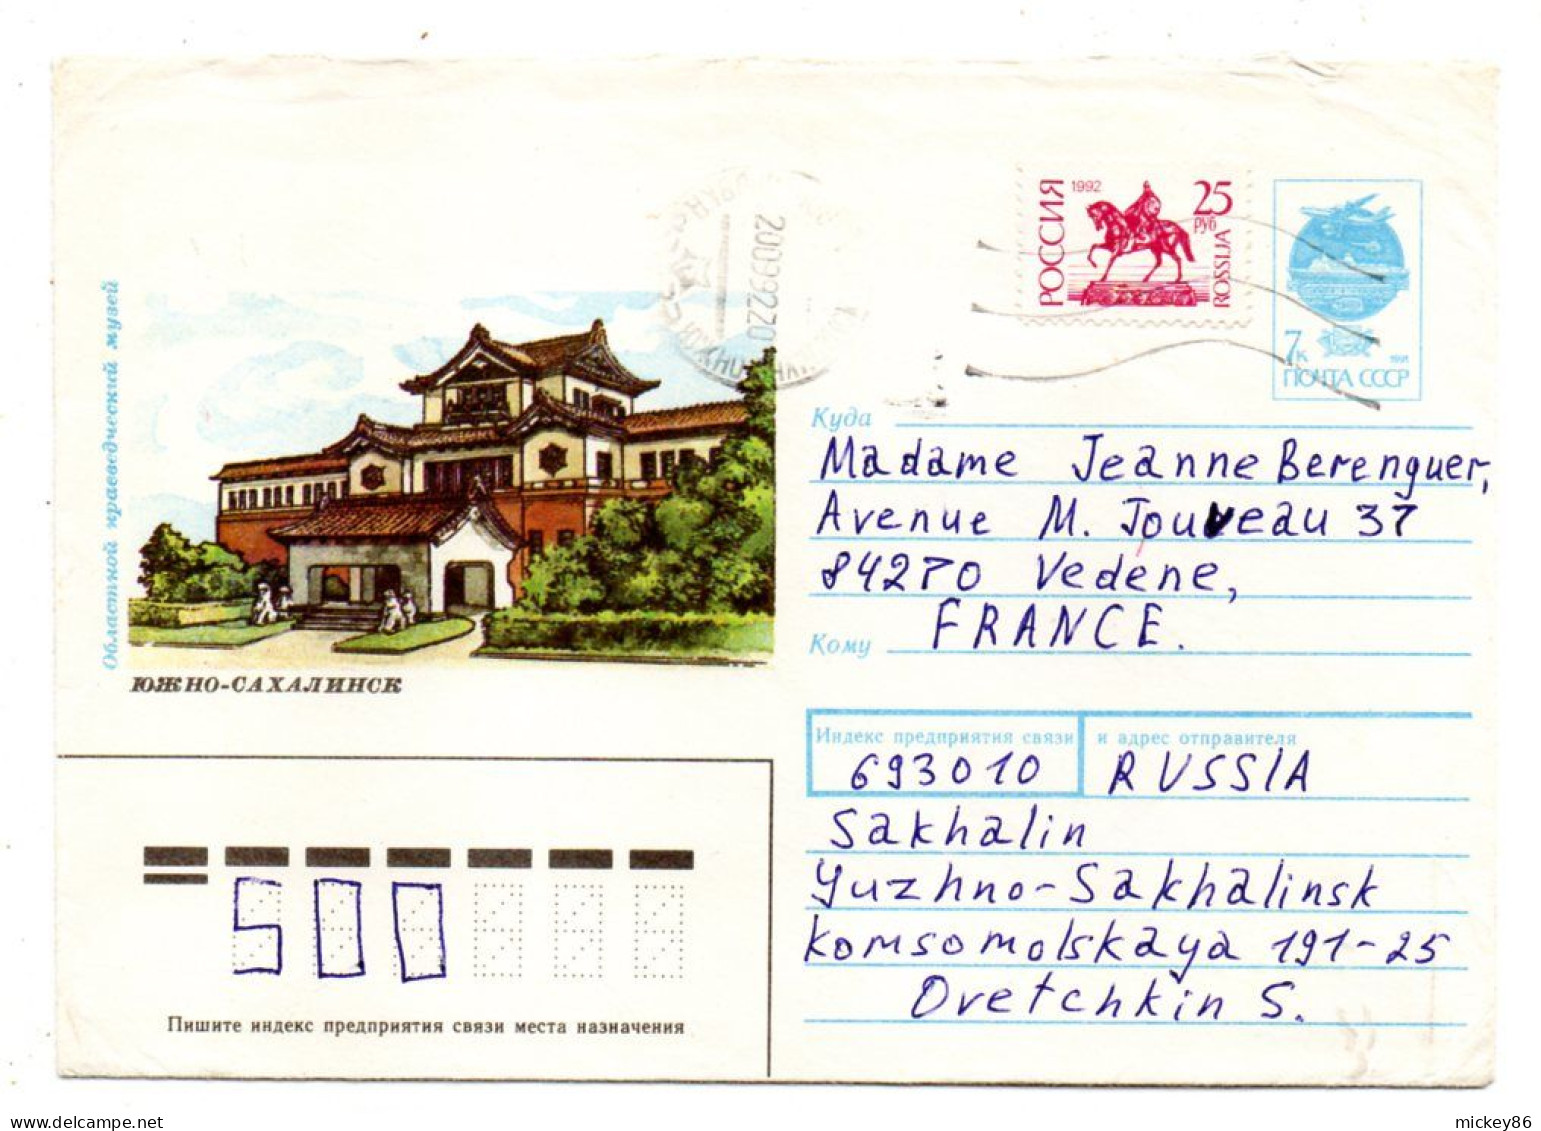 РОССИЯ
1992
25
РУБ
ROSSIJA
7к
1991
ПОЧТА СССР
20099220
Областной краеведческий музей
ЮЖНО-САХАЛИНСК
Куда
Madame Jeanne Berenguer,
Avenue M. Jouveau 37
84270 Vedene,
Кому
FRANCE.
Индекс предприятия связи
и адрес отправителя
693010
RUSSIA
Sakhalin
Yuzhno-Sakhalinsk
Komsomolskaya 191-25
Ovetchkin S.
500
Пишите индекс предприятия связи места назначения
mickey86